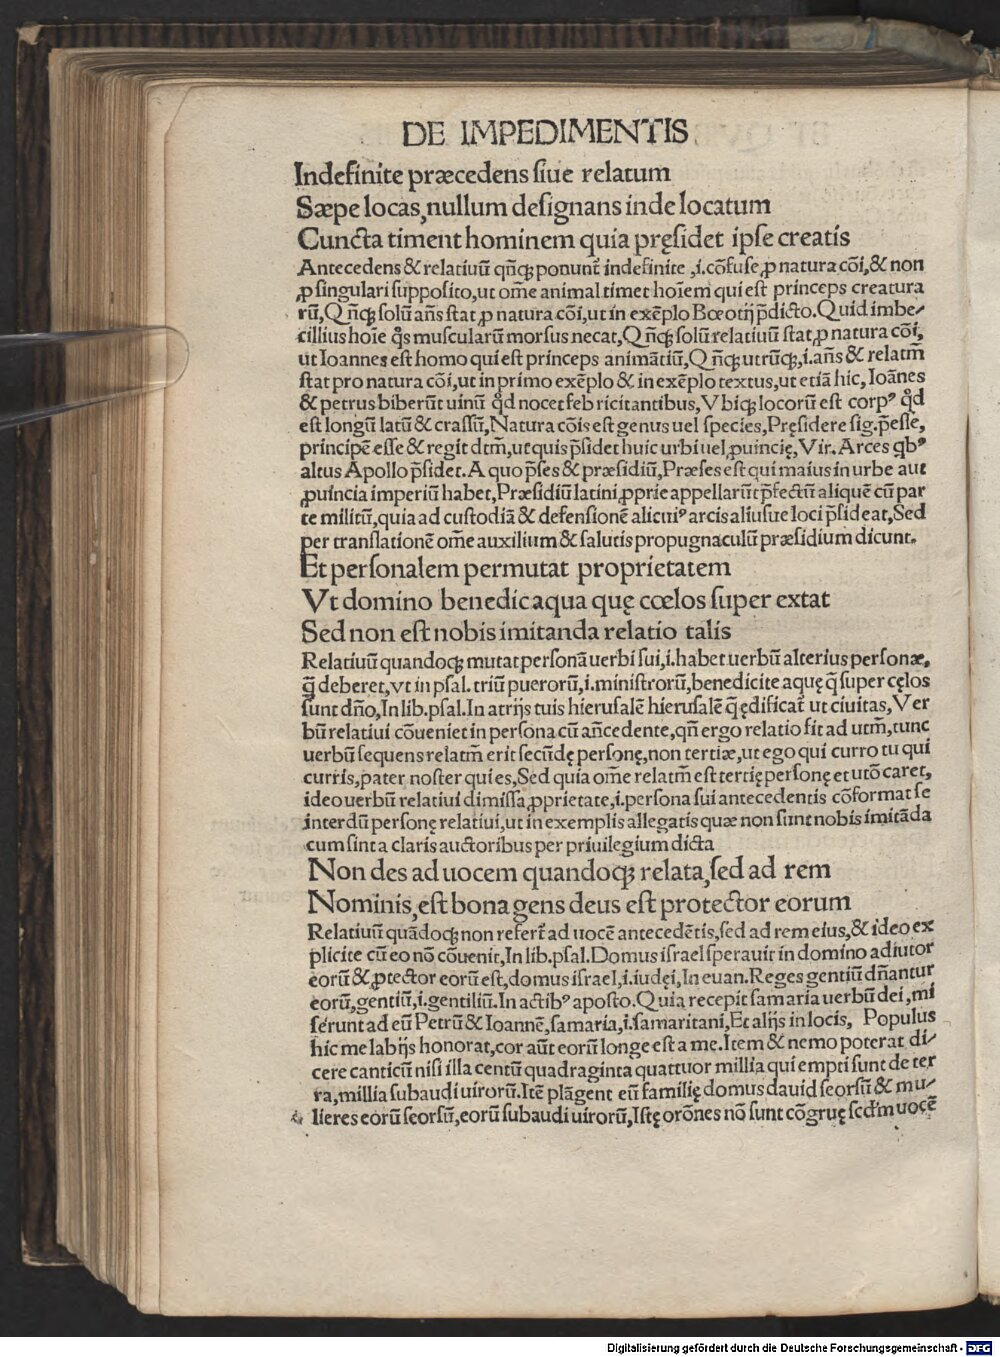 DE IMPEDIMENTIS
Indefinite præcedens siue relatum
Sæpe locas, nullum designans inde locatum
Cuncta timent hominem quia pręsidet ipse creatis
Antecedens & relatiuū qn̄cꝗ ponunt᷑ indefinite ,i.cōfuse,ꝓ natura cōi,& non
ꝓ singulari supposito,ut om̄e animal timet hoīem qui est princeps creatura
rū,Qn̄cꝗ solū an̄s stat ꝓ natura cōi,ut in exēplo Bœotij p̄dicto.Quid imbe⸗
cillius hoīe q̊s muscularū morsus necat,Qn̄cꝗ solū relatiuū stat ꝓ natura cōi,
ut Ioannes est homo qui est princeps animātiū,Qn̄cꝗ utrūcꝗ,i.an̄s & relatm̄
stat pro natura cōi,ut in primo exēplo & in exēplo textus,ut etiā hic, Ioānes
& petrus biberūt uinū q̊d nocet febricitantibus,Vbicꝗ locorū est corpꝰ q̊d
est longū latū & crassū,Natura cōis est genus uel species,Pręsidere sig.p̄esse,
principē esse & regit dtm̄,ut quis p̄sidet huic urbi uel ꝓuincię,Vir.Arces qbꝰ
altus Apollo p̄sidet.A quo p̄ses & præsidiū,Præses est qui maius in urbe aut
ꝓuincia imperiū habet,Præsidiū latini ꝓprie appellarūt p̄fectū aliquē cū par
te militū,quia ad custodiā & defensionē alicuiꝰ arcis aliusue loci p̄sideat,Sed
per translationē om̄e auxilium & salutis propugnaculū præsidium dicunt.
Et personalem permutat proprietatem
Vt domino benedic aqua quę cœlos super extat
Sed non est nobis imitanda relatio talis
Relatiuū quandocꝗ mutat personā uerbi sui,i.habet uerbū alterius personæ,
q̄ deberet,vt in psal.triū puerorū,i.ministrorū,benedicite aquę q̄ super cęlos
sunt dn̄o,In lib.psal.In atrijs tuis hierusalē hierusalē q̄ ędificat᷑ ut ciuitas,Ver
bū relatiui cōueniet in persona cū an̄cedente,qn̄ ergo relatio fit ad utm̄,tunc
uerbū sequens relatm̄ erit secūdę personę,non tertiæ,ut ego qui curro tu qui
curris,pater noster qui es,Sed quia om̄e relatm̄ est tertię personę et utō caret,
ideo uerbū relatiui dimissa ꝓprietate,i.persona sui antecedentis cōformat se
interdū personę relatiui,ut in exemplis allegatis quæ non sunt nobis imitāda
cum sint a claris auctoribus per priuilegium dicta
Non des ad uocem quandocꝗ relata, sed ad rem
Nominis, est bona gens deus est protector eorum
Relatiuū quādocꝗ non refert᷑ ad uocē antecedētis,sed ad rem eius,& ideo ex
plicite cū eo nō cōuenit,In lib.psal.Domus israel sperauit in domino adiutor
eorū & ꝓtector eorū est,domus israel,i.iudęi,In euan.Reges gentiū dn̄antur
eorū,gentiū,i.gentiliū.In actibꝰ aposto.Quia recepit samaria uerbū dei,mi
serunt ad eū Petrū & Ioannē,samaria,i.samaritani,Et alijs in locis, Populus
hic me labijs honorat,cor aūt eorū longe est a me.Item & nemo poterat di⸗
cere canticū nisi illa centū quadraginta quattuor millia qui empti sunt de ter
ra,millia subaudi uirorū.Itē plāgent eū familię domus dauid seorsū & mu⸗
lieres eorū seorsū,eorū subaudi uirorū,Istę orōnes nō sunt cōgruę scd̄m uocē
Digitalisierung gefördert durch die Deutsche Forschungsgemeinschaft - DFG